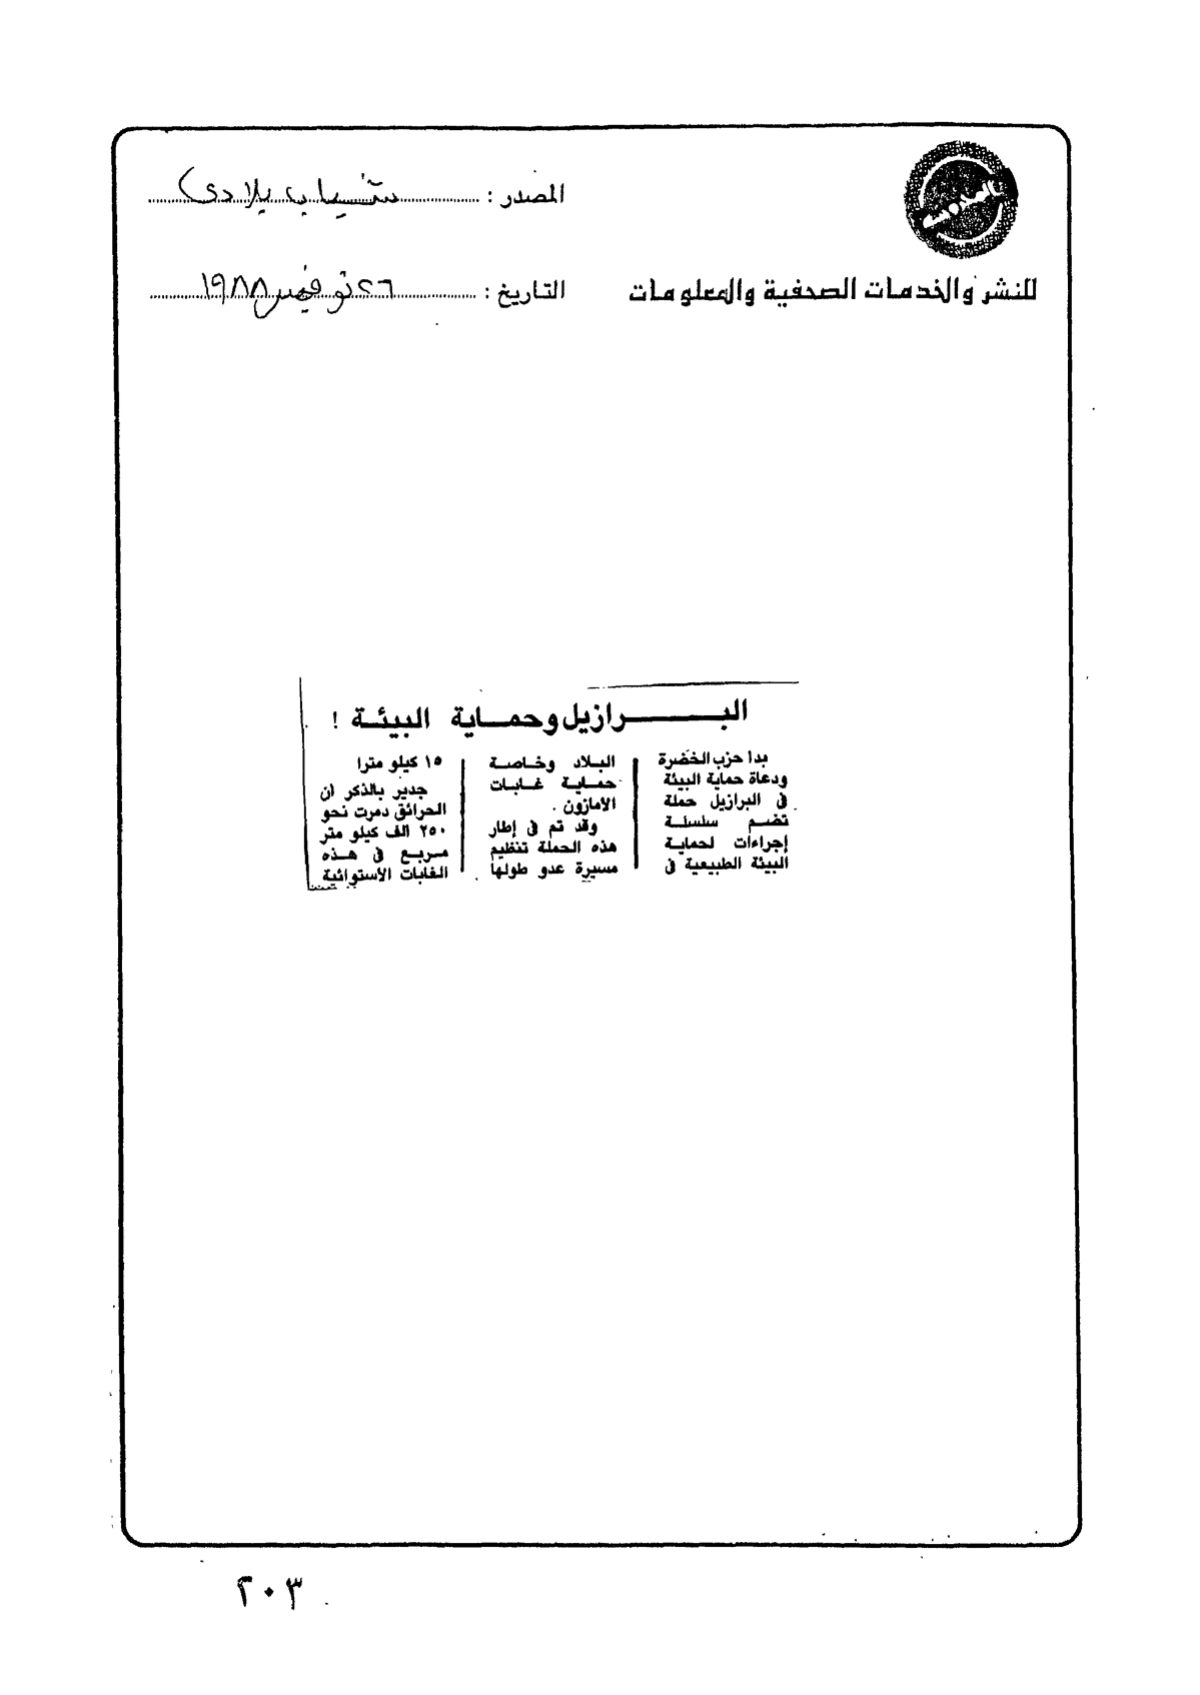 المصدر : شباب بلادى
للنشر والخدمات الصحفية والمعلومات
التاريخ : ٢٦ نوفمبر ١٩٨٨
البرازيل وحماية البيئة !
بدا حزب الخضرة
ودعاة حماية البيئة
فى البرازيل حملة
تضم سلسلة
إجراءات لحماية
البيئة الطبيعية فى
البلاد وخاصة
حماية غابات
الأمازون .
وقد تم فى إطار
هذه الحملة تنظيم
مسيرة عدو طولها
١٥ كيلو مترا
جدير بالذكر ان
الحرائق دمرت نحو
٢٥٠ الف كيلو متر
مربع فى هذه
الغابات الاستوائية
٢٠٣